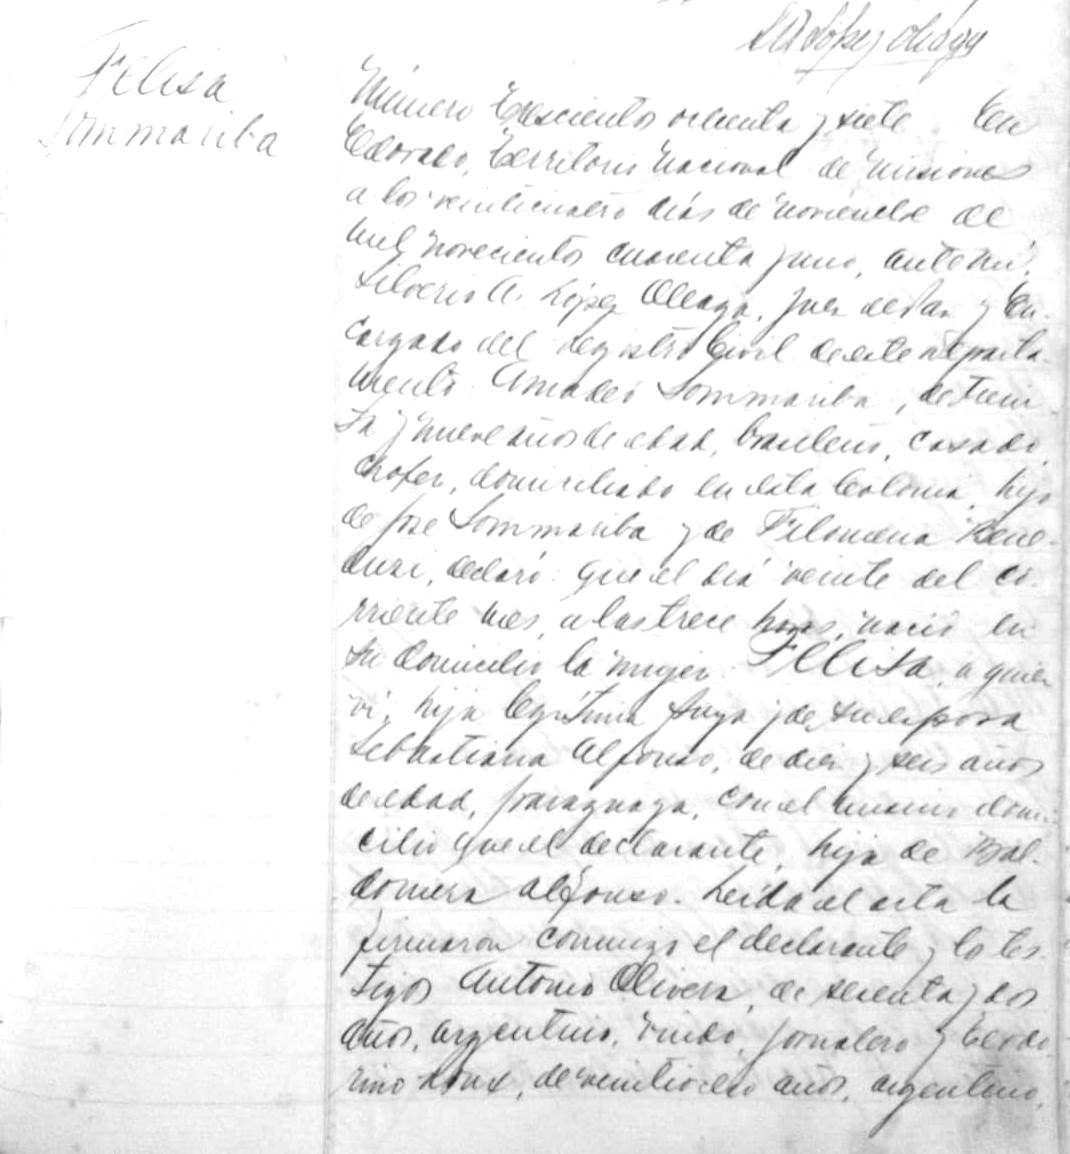 López Oleaga
Felisa
Sommariba
Número trescientos ochenta y siete En
Eldorado, Territorio Nacional de Misiones
a los veinticuatro días de Noviembre de
mil novecientos cuarenta y uno, ante mi,
Silverio A. López Oleaga, Juez de Paz y En-
cargado del Registro Civil de este departa-
mento: Amadeo Sommariba, de trein-
ta y nueve años de edad, brasileño, casado,
chofer, domiciliado en esta Colonia, hijo
de José Sommariba y de Filomena Bene-
duzi, declaró: que el día veinte del co-
rriente mes, a las trece horas, nació en
su domicilio la mujer Felisa, a quien
vi, hija legítima suya y de su esposa
Sebastiana Alfonso, de diez y seis años
de edad, paraguaya, con el mismo domi-
cilio que el declarante, hija de Bal-
domera Alfonso. Leída el acta la
firmaron conmigo el declarante y los tes-
tigos Antonio Olivera, de y dos
años, argentino, viudo, jornalero y Teodo-
rino de años, argentino,